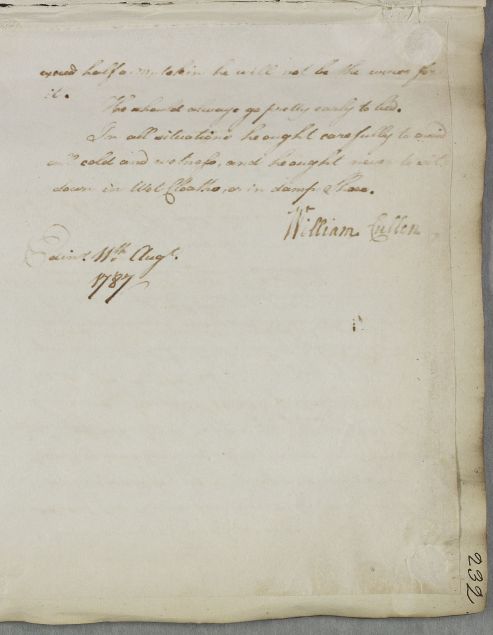 half a mutchkin he will not be the worse for
it.
He should always go pretty early to bed.
In all situations he ought carefully to avoid
cold and wetness, and he ought never to sit
down in Wet Cloaths, or in damp place.
William Cullen
Edinr. 11th Augt.
1787
232